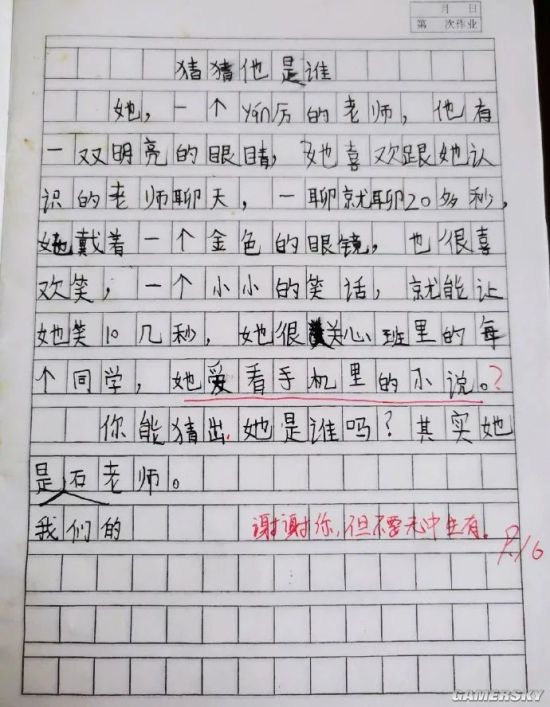 月 日
第 次作业
猜猜他是谁
她，一个yán厉的老师，他有
一双明亮的眼睛，她喜欢跟她认
识的老师聊天，一聊就聊20多秒，
她戴着一个金色的眼镜，也很喜
欢笑，一个小小的笑话，就能让
她笑10几秒，她很关心班里的每
个同学，她爱看手机里的小说。？
你能猜出她是谁吗？其实她
是石老师。
我们的
谢谢你，但不要无中生有。
GAMERSKY